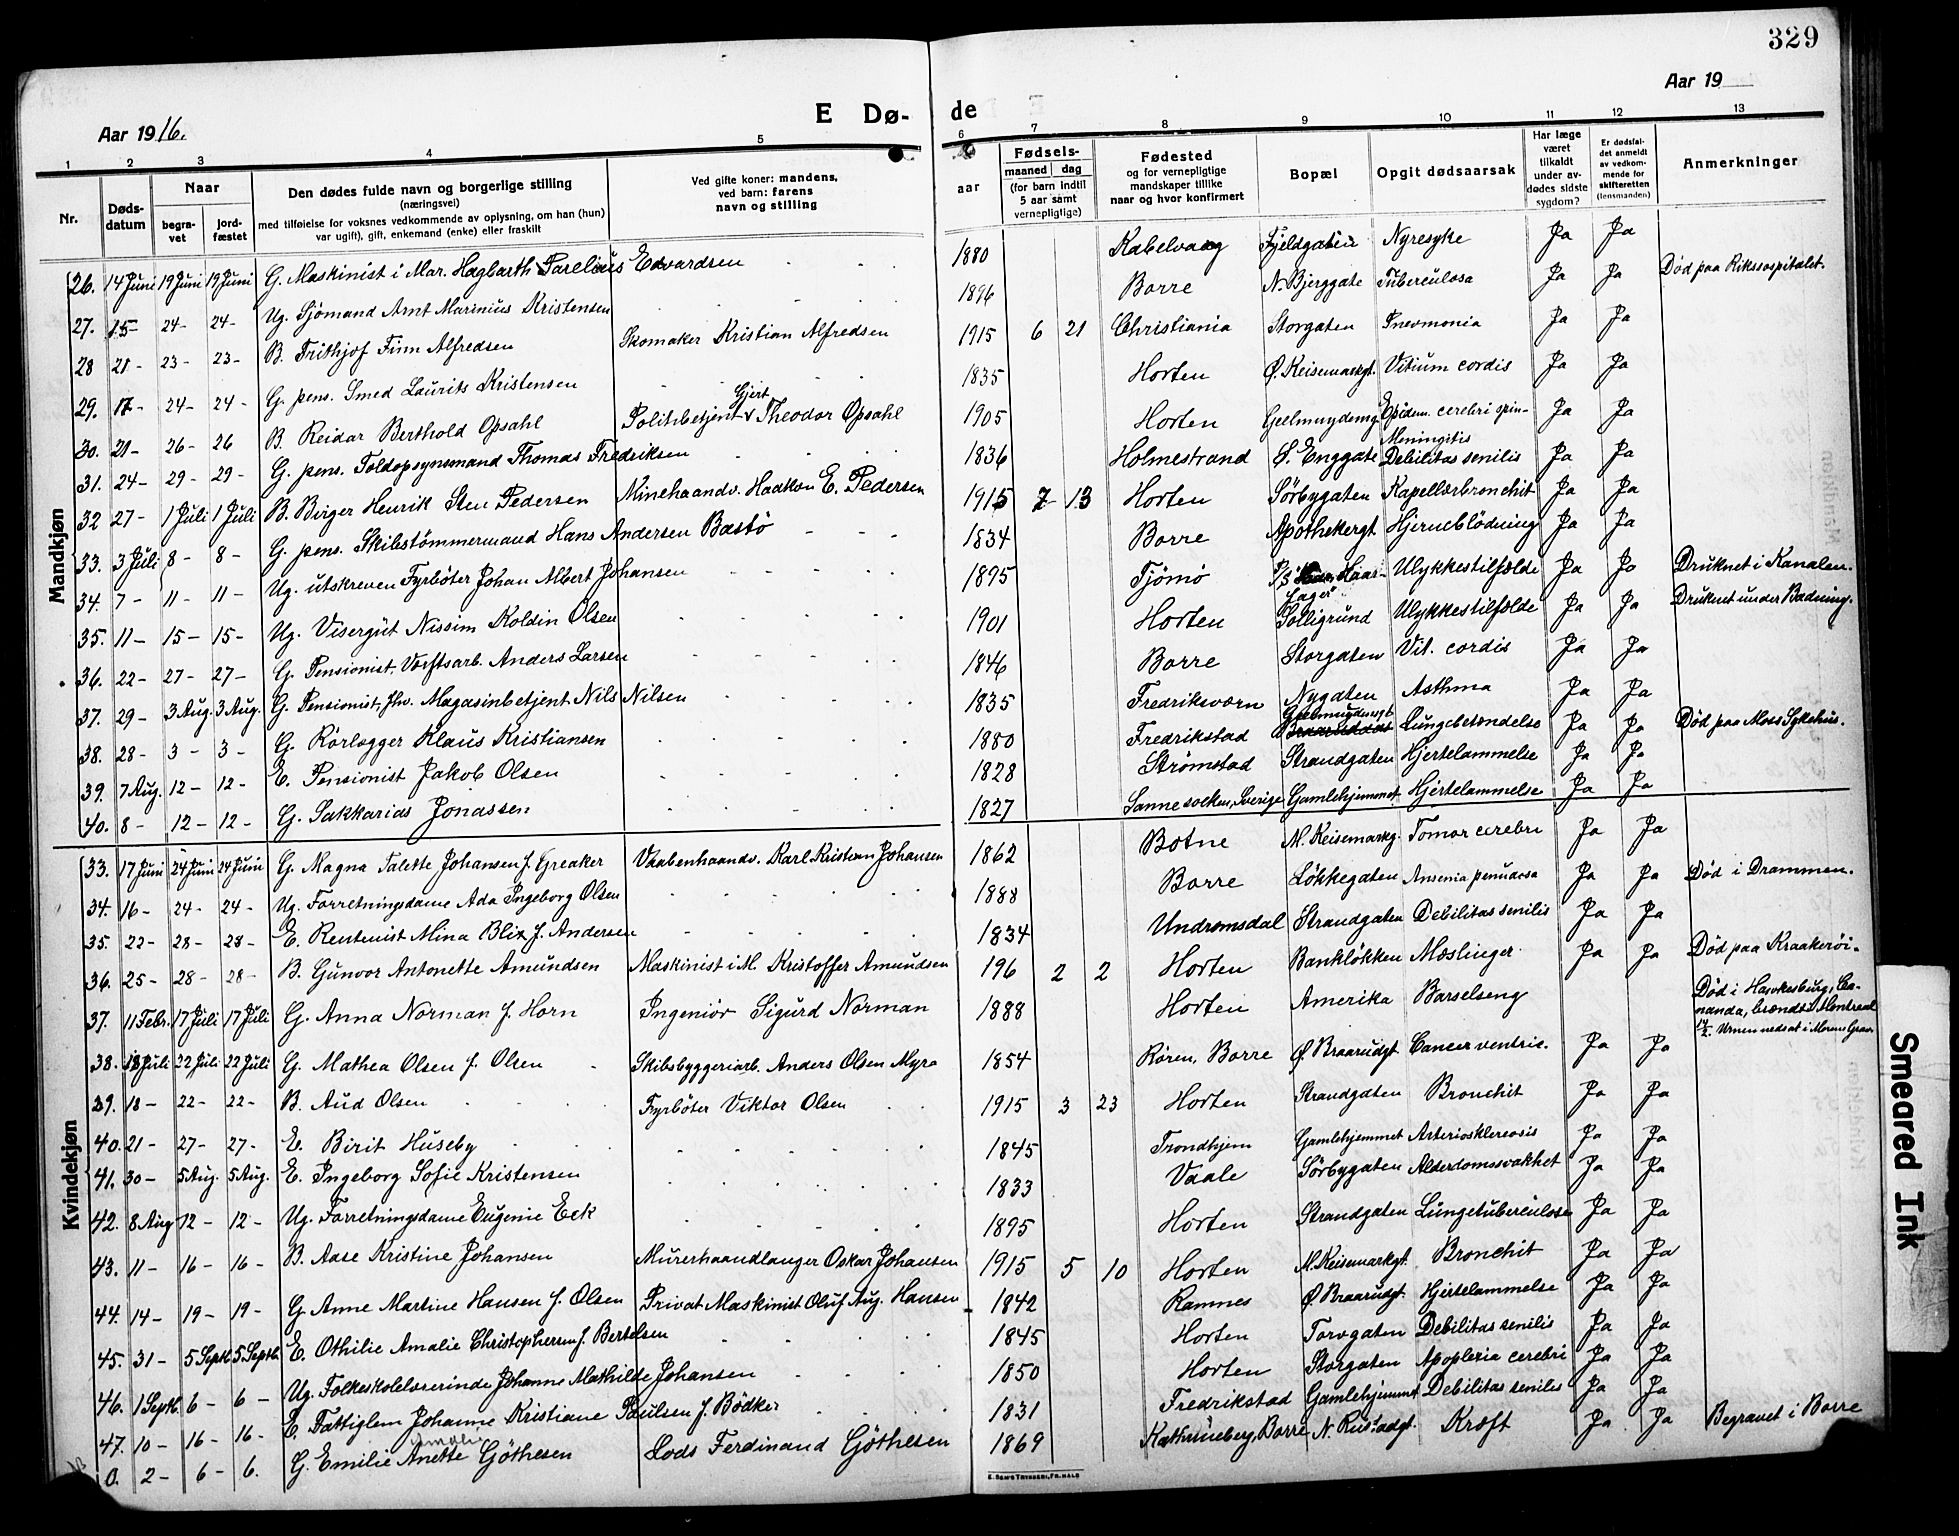 329
Aar 1916.
E Dø-
de
Aar 19
1 2 3 4 5 6 7 8 9 10 11 12 13
Nr.
Døds-
datum
Naar
begra-
vet
jord-
fæstet
Den dødes fulde navn og borgerlige stilling
(næringsvei)
med tilføielse for voksnes vedkommende av oplysning, om han (hun)
var ugift), gift, enkemand (enke) eller fraskilt
Ved gifte koner: mandens,
ved barn: farens
navn og stilling
aar
Fødsels-
maaned dag
(for barn indtil
5 aar samt
vernepligtige)
Fødested
og for vernepligtige
mandskaper tillike
naar og hvor konfirmert
Bopæl
Opgit dødsaarsak
Har læge
været
tilkaldt
under av-
dødes sidste
sygdom?
Er dødsfal-
det anmeldt
av vedkom-
mende for
skifteretten
(lensmanden)
Anmerkninger
Mandkjøn
26. 14 Juni 19 Juni 19 Juni G. Maskinist i Mar. Hagbarth Parelius Edvardsen 1880 Kabelvaag Fjeldgaten Nyresyke Ja Ja
27. 15- 24- 24- Ug. Sjömand Arnt Marinius Kristensen 1896 Borre N. Bjerggate Tuberculosa Ja Ja Död paa Rikshospitalet.
28 21- 23- 23- B. Frithjof Finn Alfredsen Skomaker Kristian Alfredsen 1915 6 21 Christiania Storgaten Pnevmonia Ja Ja
29. 17- 24- 24- G. pens. Smed Laurits Kristensen 1835 Horten Ø. Keisemarkgt. Vitium cordis Ja Ja
30. 21- 26- 26 B. Reidar Berthold Opsahl Politibetjent Gjert Theodor Opsahl 1905 Horten Geelmuydensg. Epidem. cerebri spin- Meningitis Ja Ja
31. 24- 29- 29- G. pens. Toldopsynsmand Thomas Fredriksen 1836 Holmestrand Ø. Enggate Debilitas senilis Ja Ja
32 27- 1 Juli 1 Juli B. Birger Henrik Sten Pedersen Minehaandv. Haakon E. Pedersen 1915 7 13 Horten Sörbygaten Kapellærbronchit Ja Ja
33. 3 Juli 8- 8- G. pens. Skibstömmermand Hans Andersen Bastö 1834 Borre Apothekergt. Hjerneblödning Ja Ja
34. 7- 11- 11- Ug. utskreven Fyrböter Johan Albert Johansen 1895 Tjömö P/S Haar- fager" Ulykkestilfælde Ja Ja Druknet i Kanalen.
35. 11- 15- 15- Ug. Visergut Nissim Koldin Olsen 1901 Horten Solligrund Ulykkestilfælde Ja Ja Druknet under Badning.
36. 22- 27- 27- G. Pensionist. Værftsarb. Anders Larsen 1846 Borre Storgaten Vit. cordis Ja Ja
37. 29- 3 Aug. 3 Aug. G. Pensionist, Magasinbetjent Nils Nilsen 1835 Fredriksværn Nygaten Asthma Ja Ja
38. 28- 3- 3- G. Rörlægger Klaus Kristiansen 1880 Fredrikstad Geelmuydensgt. Lungebetændelse Ja Ja Död paa Moss Sykehus.
39. 7 Aug. 12- 12- E. Pensionist Jakob Olsen 1828 Strömstad Strandgaten Hjertelammelse Ja Ja
40. 8- 12- 12- G. Sakkarias Jonassen 1827 Sannesocken, Sverige Gamlehjemmet Hjertelammelse Ja Ja
Kvindekjøn
33. 17 Juni 24 Juni 24 Juni G. Magna Talette Johansen f. Greaker Vaabenhaandv. Karl Kristian Johansen 1862 Botne M. Keisemarkg. Tomor cerebri Ja Ja
34. 16- 24- 24- Ug. Forretningsdame Ada Ingeborg Olsen 1888 Borre Lökkegaten Ja Ja Död i Drammen.
35. 22- 28- 28- E. Rentenist Mina Blix f. Andersen 1834 Undromsdal Strandgaten Debilitas senilis Ja Ja
36. 25- 28- 28- B. Gunvor Antonette Amundsen Maskinist i M. Kristoffer Amundsen 196 2 2 Horten Banklökken Mæslinger Ja Ja Död paa Kraakeröi.
37. 11 Febr. 17 Juli 17 Juli G. Anna Norman f. Horn Ingeniör Sigurd Norman 1888 Horten Amerika Barselseng Död i Hawkesburg, Ca- nanda, brændt i Montreal Urnen nedsat i Grav
38. 18 Juli 22 Juli 22 Juli G. Mathea Olsen f. Olsen Skibsbyggeriarb. Anders Olsen Myra 1854 Rören, Borre Ø. Braarudgt. Cancer ventric. Ja Ja
39. 18- 22- 22- B. Aud Olsen Fyrböter Viktor Olsen 1915 3 23 Horten Strandgaten Bronchit Ja Ja
40. 21- 27- 27- E. Birit Huseby 1845 Trondhjem Gamlehjemmet Arteriosklereosis Ja Ja
41. 30- 5 Aug. 5 Aug. E. Ingeborg Sofie Kristensen 1833 Vaale Sörbygaten Alderdomssvakhet Ja Ja
42. 8 Aug 12- 12- Ug. Forretningsdame Eugenie Eek 1895 Horten Strandgaten Lungetuberculose Ja Ja
43. 11- 16- 16- B. Aase Kristine Johansen Murerhaandlanger Oskar Johansen 1915 5 10 Horten M. Keisemarkgt. Bronchit Ja Ja
44. 14- 19- 19- G. Anne Martine Hansen f. Olsen Privat Maskinist Oluf Aug. Hansen 1842 Ramnes Ø. Braarudgt. Hjertelammelse Ja Ja
45. 31- 5 Septb. 5 Septb. E. Othilie Amalie Christophersen f. Bertelsen 1845 Horten Torvgaten Debilitas senilis Ja Ja
46. 1 Septb. 6- 6- Ug. Folkeskolelærerinde Johanne Mathilde Johansen 1850 Horten Storgaten Apoplexia cerebri Ja Ja
47. 10- 16- 16- E. Fattiglem Johanne Kristiane Paulsen f. Bödker 1831 Fredrikstad Gamlehjemmet Debilitas senilis Ja Ja
0. 2- 6- 6. G. Emilie Anette Amalie Göthesen Lods Ferdinand Göthesen 1869 Kathrineberg, Borre N. Rustadgt. Kræft Ja Ja Begravet i Borre
E. SEM'S TRYKKERI, FR.HALD
Smeared Ink